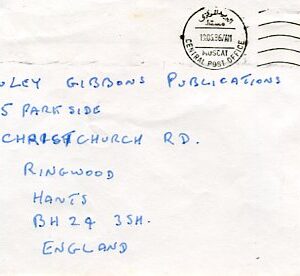 البريد المركزي
مسقط
19.05.96/AM
MUSCAT
CENTRAL POST OFFICE
NLEY GIBBONS PUBLICATIONS
5 PARKSIDE
CHRISTCHURCH RD.
RINGWOOD
HANTS
BH24 3SH.
ENGLAND